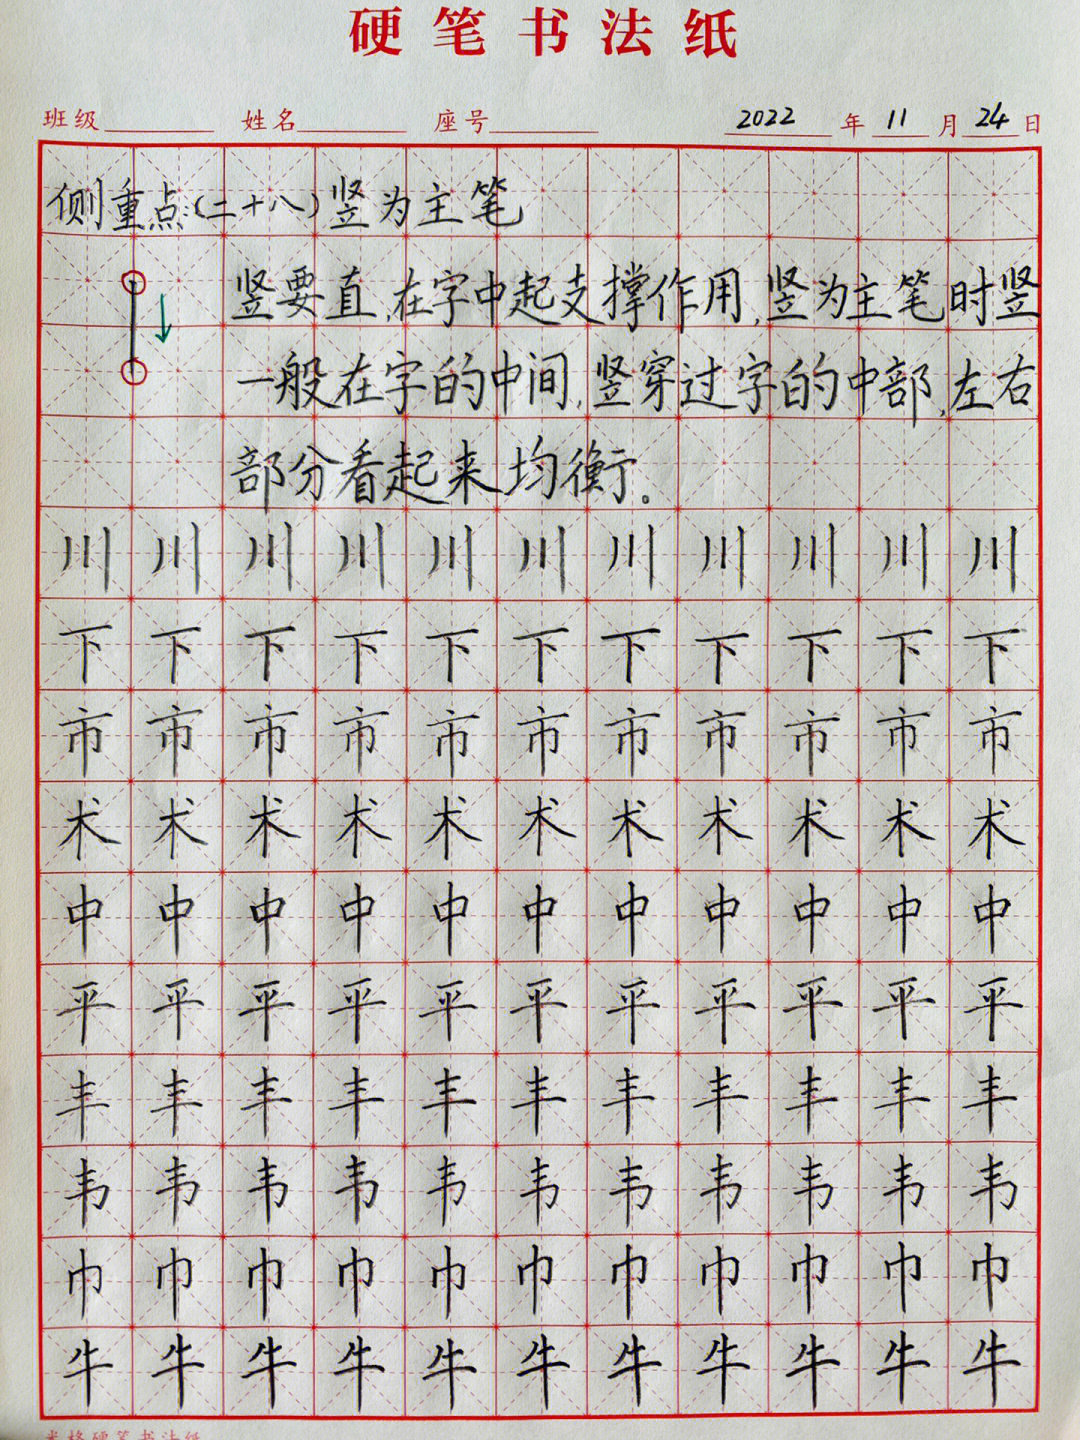 硬笔书法纸
班级 姓名 座号 2022年11月24日
侧重点(二十八)竖为主笔
竖要直,在字中起支撑作用,竖为主笔时竖
一般在字的中间,竖穿过字的中部,左右
部分看起来均衡。
川川川川川川川川川川川
下下下下下下下下下下下
市市市市市市市市市市市
术术术术术术术术术术术
中中中中中中中中中中中
平平平平平平平平平平平
丰丰丰丰丰丰丰丰丰丰丰
韦韦韦韦韦韦韦韦韦韦韦
巾巾巾巾巾巾巾巾巾巾巾
牛牛牛牛牛牛牛牛牛牛牛
米格硬笔书法纸